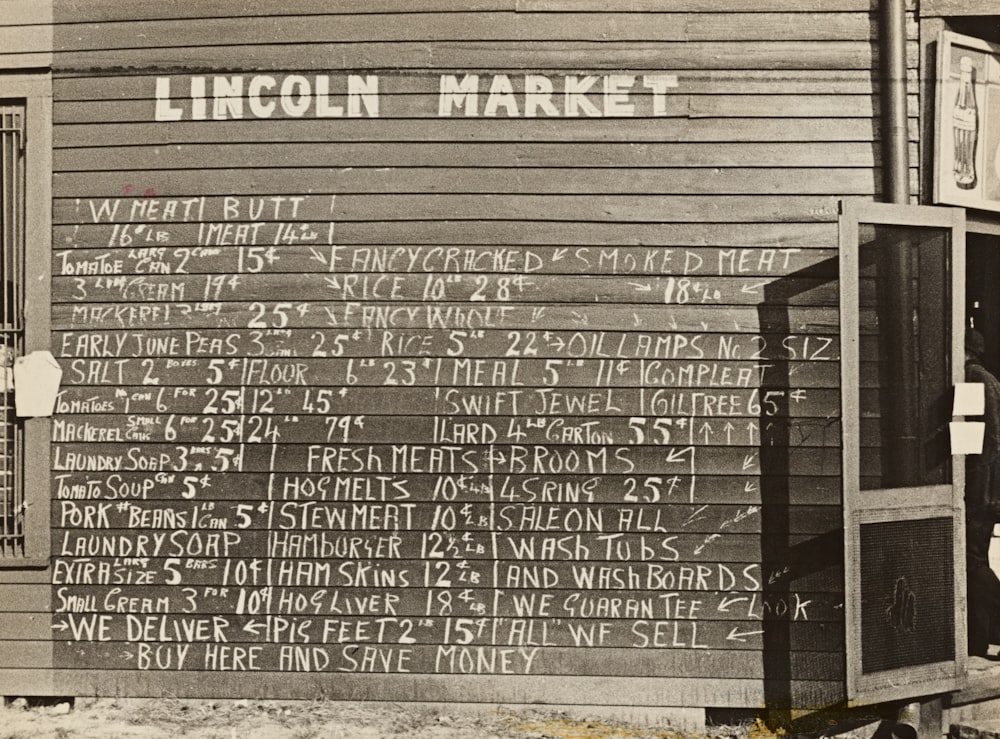 LINCOLN MARKET
W MEAT | BUTT |
16¢ LB | MEAT 14¢ LB |
TOMATOE LARG CAN 2 CAN 15¢ ↘ FANCY CRACKED ↙ SMOKED MEAT
3 CREAM 19¢ → RICE 10 LB 28¢ → 18¢ LB ←
MACKEREL 25¢ FANCY WHOLE
EARLY JUNE PEAS 3 CAN 25¢ RICE 5 LB 22¢ → OIL LAMPS NO 2 SIZ
SALT 2 BOXES 5¢ | FLOUR 6 LB 23¢ | MEAL 5 LB 11¢ | COMPLEAT
TOMATOES NO 1 CAN 6 FOR 25¢ | 12 LB 45¢ | SWIFT JEWEL | OIL FREE 65¢
MACKEREL SMALL CAN 6 FOR 25¢ | 24 LB 79¢ | LARD 4 LB CARTON 55¢ | ↑ ↑ ↑
LAUNDRY SOAP 3 BARS 5¢ | FRESH MEATS → BROOMS ↙
TOMATO SOUP CAN 5¢ | HOG MELTS 10¢ LB | 4 SRING 25¢ |
PORK # BEANS 1 CAN 5¢ | STEW MEAT 10¢ LB | SALE ON ALL
LAUNDRY SOAP | HAMBURGER 12½¢ LB | WASH TUBS
EXTRA LARG SIZE 5 BARS 10¢ | HAM SKINS 12¢ LB | AND WASH BOARDS
SMALL CREAM 3 FOR 10¢ | HOG LIVER 18¢ LB | WE GUARANTEE ← LOOK
→ WE DELIVER ← | PIG FEET 2 LB 15¢ | "ALL" WE SELL ←
→ BUY HERE AND SAVE MONEY